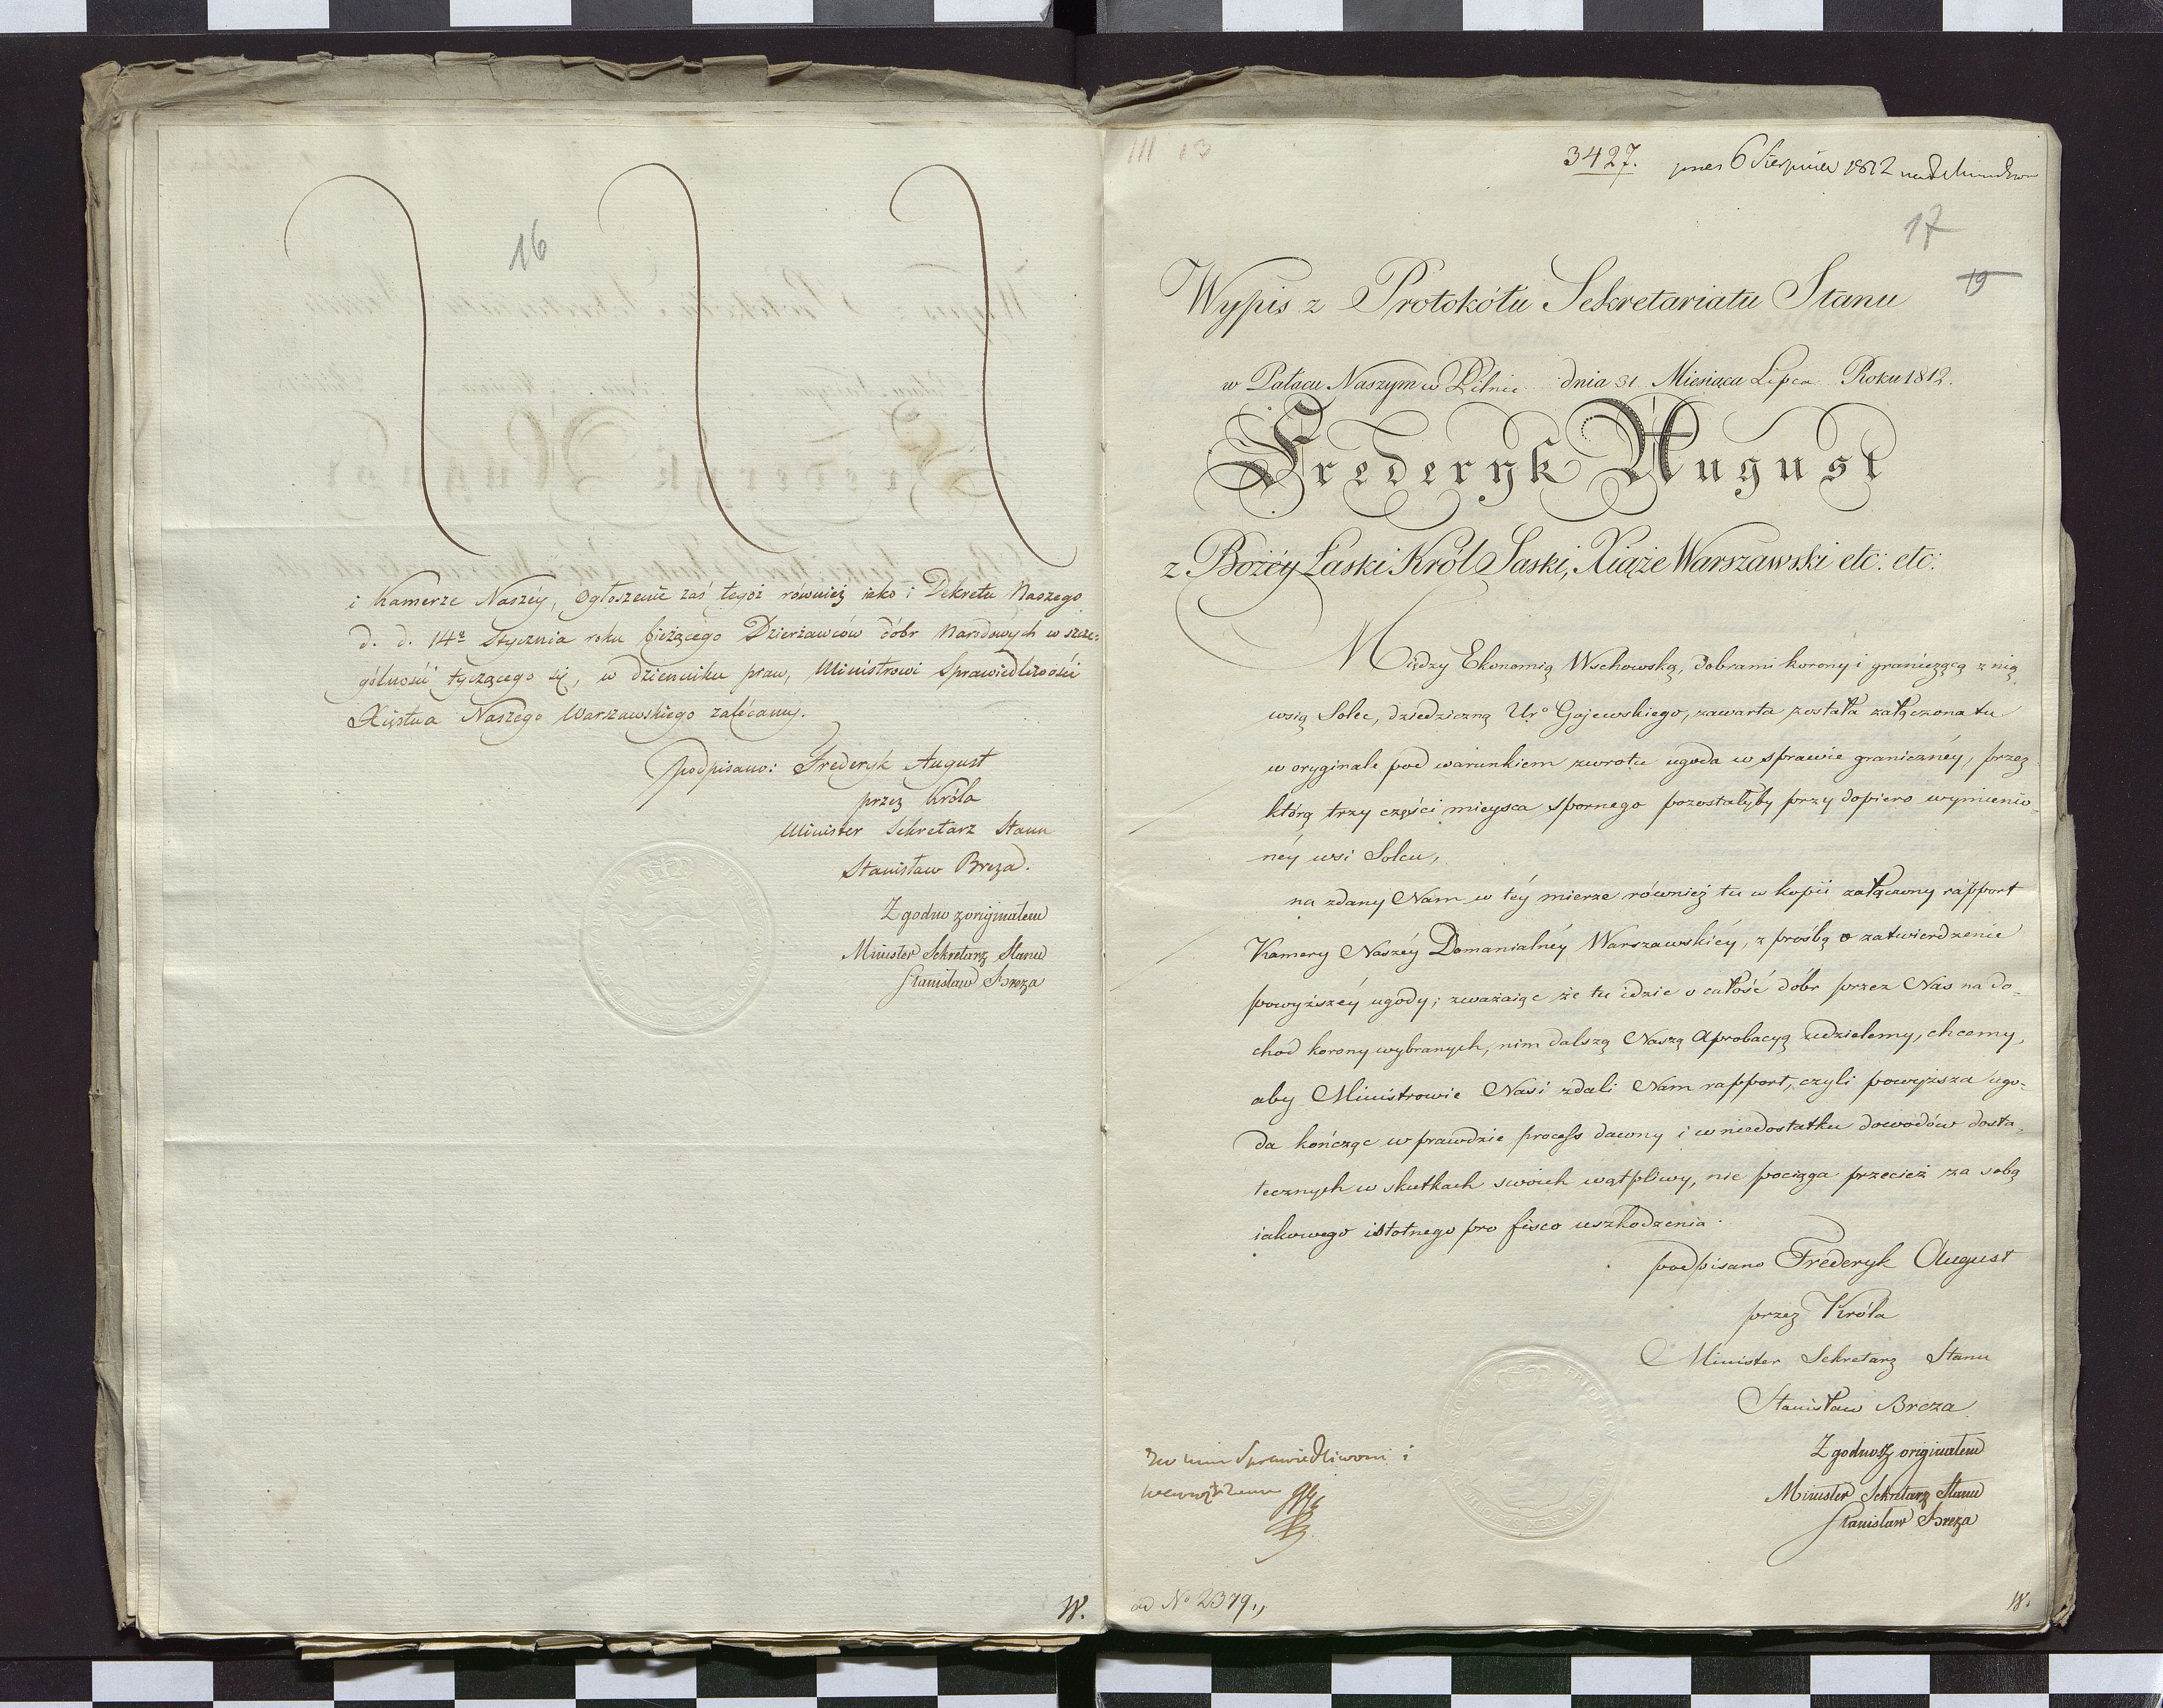 16
i Kamerze Naszéy, Ogłoszenie zaś tegoż również iako i Dekretu Naszego
d. d. 14º Stycznia roku bieżącego Dzierżawców dóbr Narodowych w szcze=
gólności tyczącego się, w dzienniku praw, Ministrowi Sprawiedliwości
Xięstwa Naszego Warszawskiego zalécamy.
podpisano: Frederyk August
przez Króla
Minister Sekretarz Stanu
Stanisław Breza.
Zgodno z originałem
Minister Sekretarz Stanu
Stanisław Breza
W.
III 13
3427. 6 Sierpnia 1812
17
19
Wypis z Protokółu Sekretariatu Stanu
w Pałacu Naszym w Pilnic dnia 31 Miesiąca Lipca Roku 1812.
Frederyk August
z Bożéy Łaski Król Saski, Xiąże Warszawski etc: etc:
Między Ekonomią Wschowską, dobrami korony i graniczącą z nią
wsią Solec, dziedziczną Urº Gajewskiego, zawarta została załączona tu
w oryginale pod warunkiem zwrotu ugoda w sprawie granicznéy, przez
którą trzy części mieysca spornego pozostałyby przy dopiero wymienio=
néy wsi Solcu,
na zdany Nam w téy mierze również tu w kopii załączony rapport
Kamery Naszéy Domanialnéy Warszawskiéy, z prośbą o zatwierdzenie
powyższéy ugody; zważaiąc że tu idzie o całość dóbr przez Nas na do=
chod korony wybranych, nim dalszą Naszą Aprobacyą udzielemy, chcemy,
aby Ministrowie Nasi zdali Nam rapport, czyli powyższa ugo=
da kończąc wprawdzie process dawny i w niedostatku dowodów dosta=
tecznych w skutkach swoich wątpliwy, nie pociąga przecież za sobą
iakowego istotnego pro fisco uszkodzenia.
podpisano Frederyk August
przez Króla
Minister Sekretarz Stanu
Stanisław Breza
Zgodno z originałem
Minister Sekretarz Stanu
Stanisław Breza
Sprawiedliwości i
ad Nº 2379.,
W.